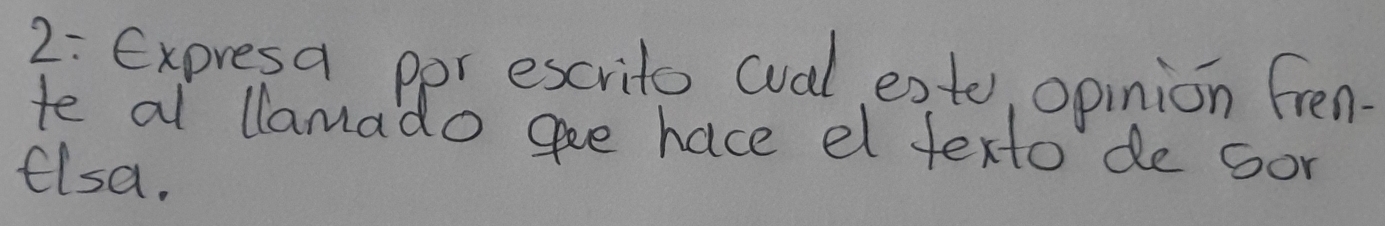 2: Expresa por escrito cual este, opinión fren-
te al llamado que hace el texto de Sor
Elsa.